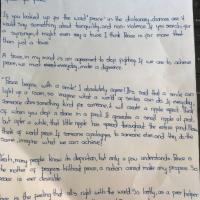 If you looked up for the word "peace" in the dictionary, chances are it
would say something about tranquility and non-violence. If you search for
a synonym, it might even say a truce. I think Peace is far more that
than just a truce.
A truce, in my mind is an agreement to stop fighting. If we are to achieve
peace, we must everyday, make a difference.
"Peace begins with a smile". I absolutely agree! It is said that a smile can
light up a room, so imagine what a world of smiles can do. If everyday,
someone does something kind for someone, it will create a ripple effect. Think
of when you drop a stone in a pond. It generates a small ripple at first,
but after a while, that little ripple has spread throughout the entire pond. Now
think of world peace. If someone apologizes to someone else and they do the
same, imagine what we can achieve!
many people know its definition, but only a few understands. Peace is
the mother of progress. Without peace, a nation cannot make any progress. So
peace is ever desirable.
is the feeling that all is right with the world. So lastly, as a peer helper